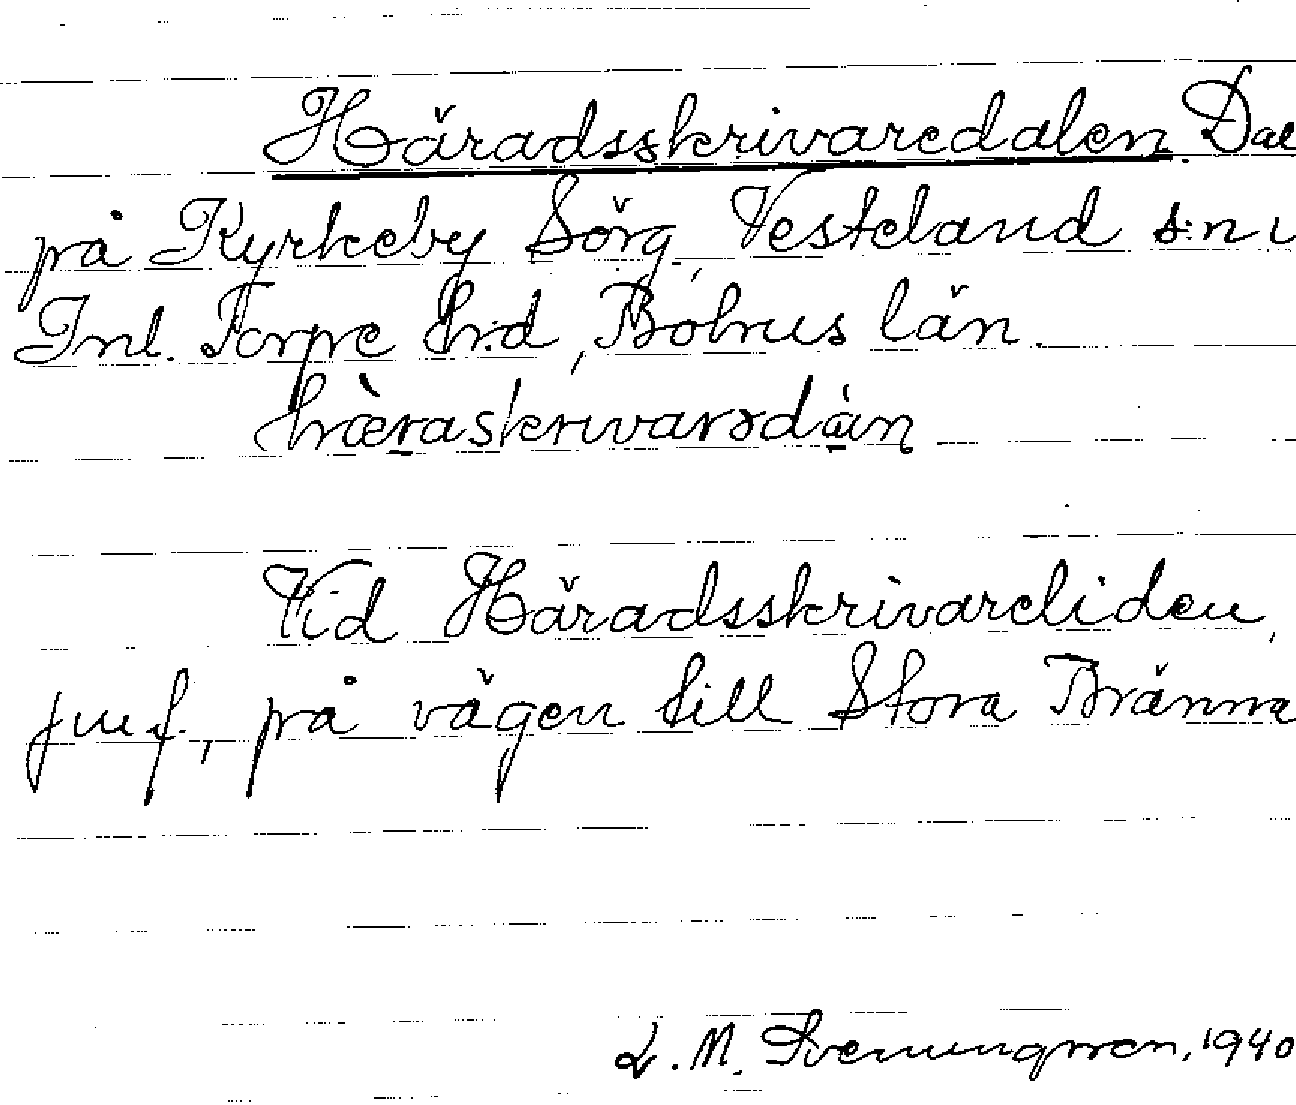 Häradsskrivaredalen. Dal
på Kyrkeby Sörg, Vesteland s:n i
Inl. Torpe h:d, Bohus län.
hæ̀raskrivarədàn
Vid Häradsskrivareliden,
jmf., på vägen till Stora Bränna
L. M. Svenungsson, 1940